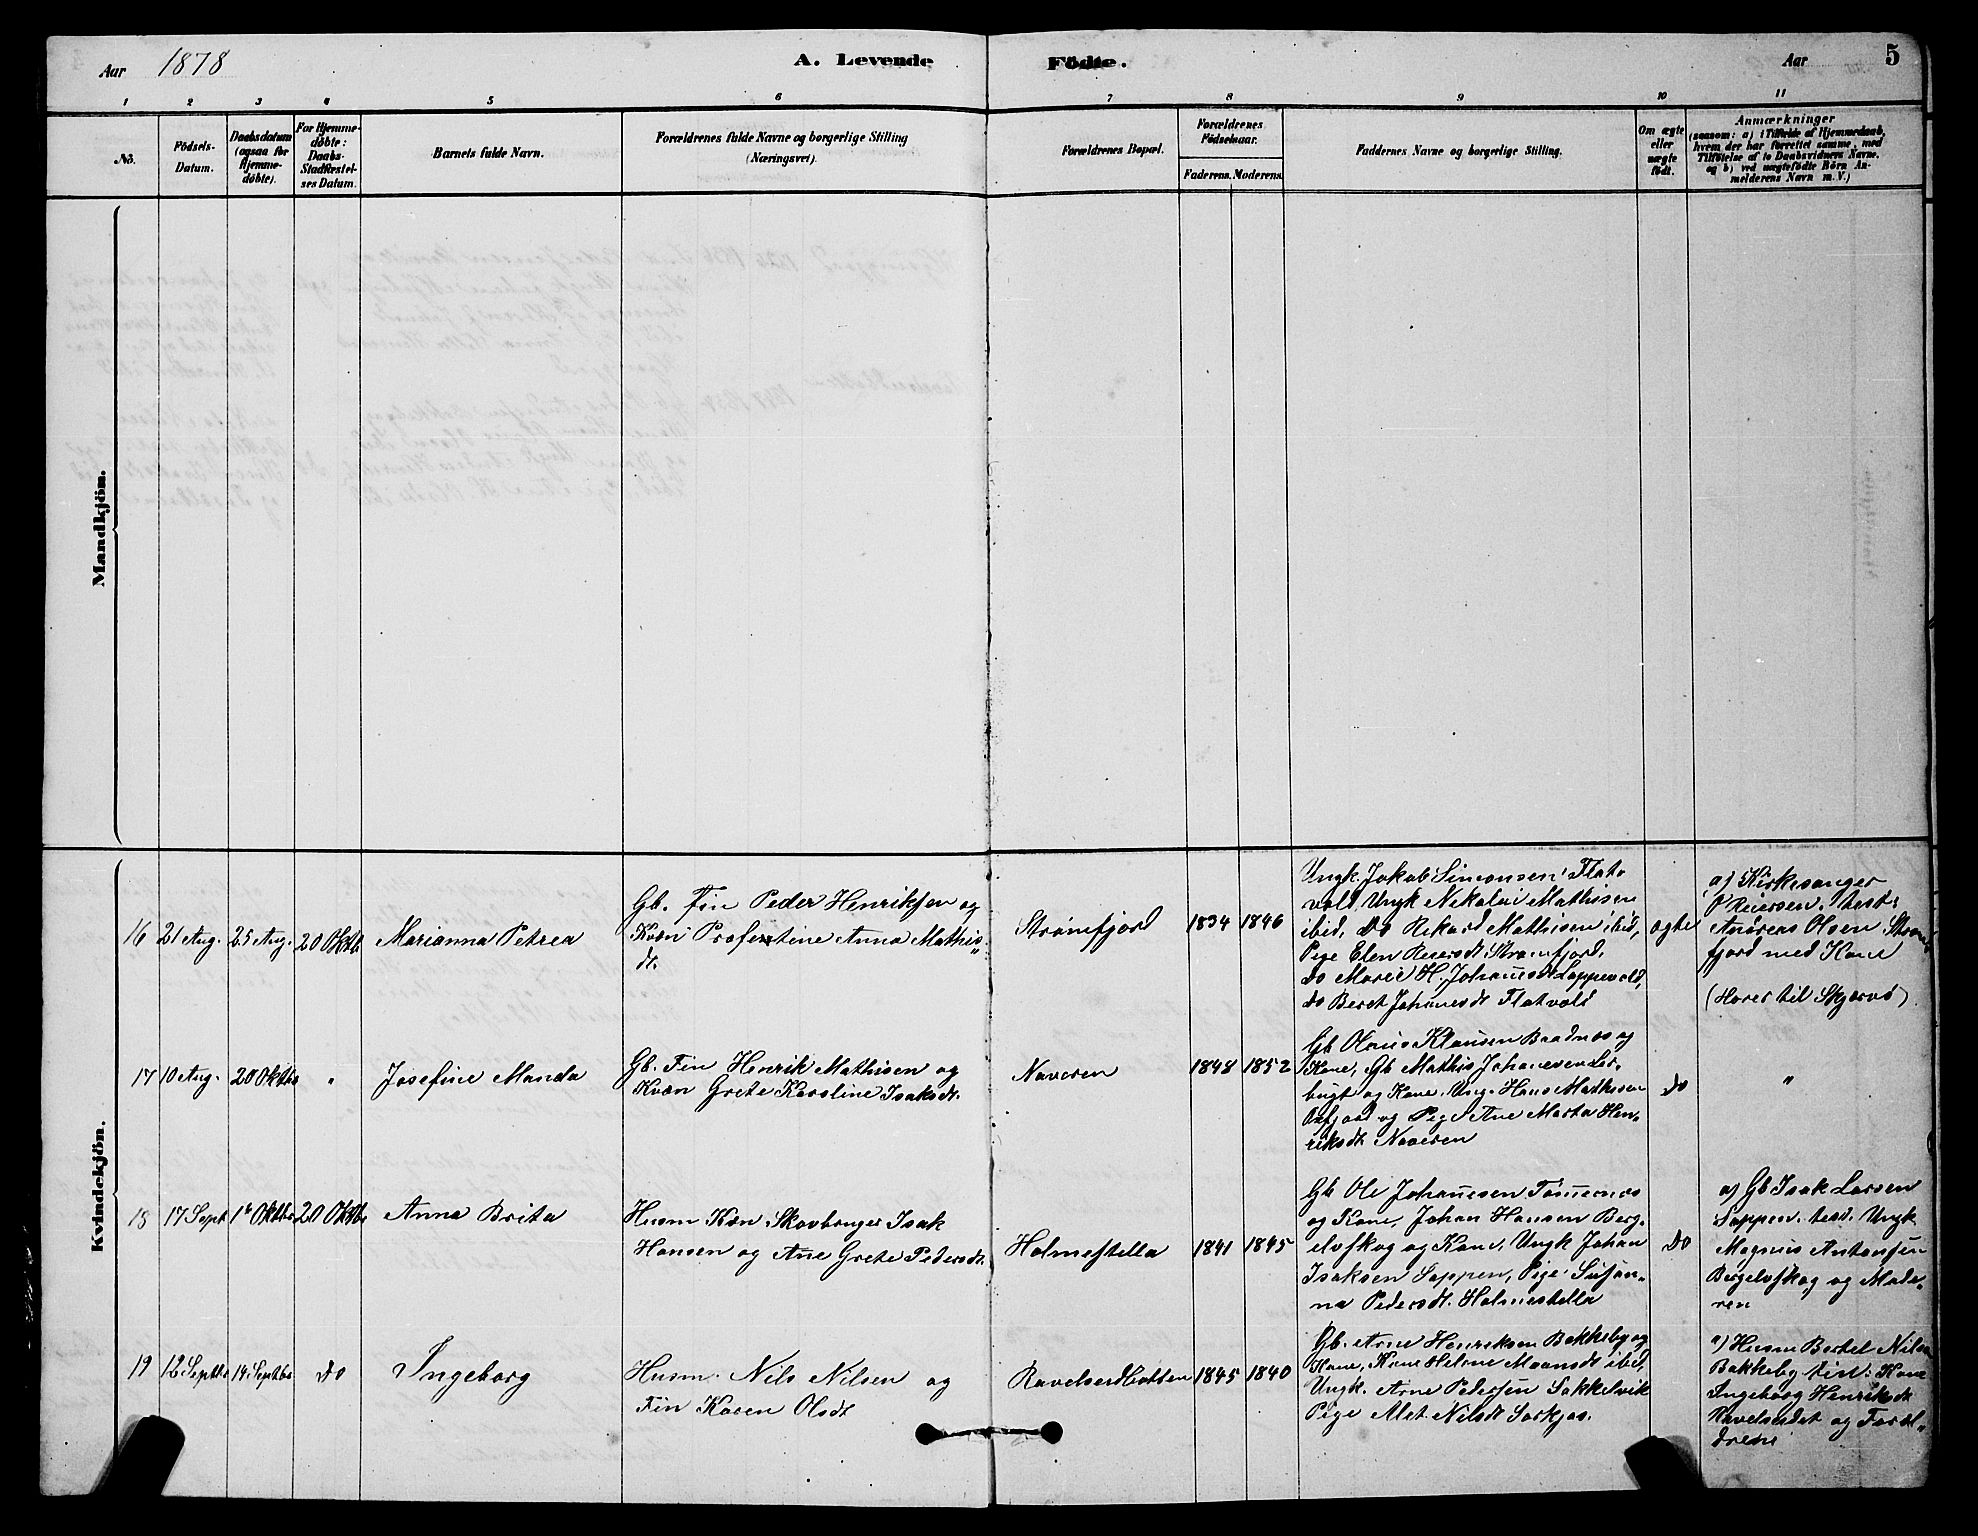 Aar 1878
A. Levende Födte.
Aar 5
1 2 3 4 5 6 7 8 9 10 11
No.
Födsels-Datum.
Daabsdatum (ogsaa for Hjemme-döbte).
For Hjemme-döbte: Daabs-Stadfæstel-ses Datum.
Barnets fulde Navn.
Forældrenes fulde Navne og borgerlige Stilling (Næringsvei).
Forældrenes Bopæl.
Forældrenes Födselsaar.
Faderens. Moderens.
Faddernes Navne og borgerlige Stilling.
Om ægte eller uægte födt.
Anmærkninger
(saasom: a) i Tilfælde af Hjemmedaab,
hvem der har forrettet samme, med
Tilföielse af to Daabsvidners Navne,
og b) ved uægtefödte Börn An-
melderens Navn m. V.)
Mandkjön.
Kvindekjön.
16 21 Aug. 25 Aug. 20 Oktb. Marianna Petrea
Gb. Fin Peder Henriksen og
Kvæn Profentine Anna Mathis
dt.
Strømfjord 1834 1846
Ungk. Jakob Simonsen Flat-
vold, Ungk Nikolai Mathisen
ibid, Do Rikard Mathisen ibid,
Pige Elen Reiersdt. Strømfjord,
Do Marie H. Johansdt Loppevold,
Do Beret Johanesdt Flatvold
ægte
a) Kirkesanger
Reiersen, test:
Andreas Olsen Strøm
fjord med Kone
(Hører til Skjervø)
17 10 Aug. 20 Oktbr " Josefine Manda
Gb. Fin Henrik Mathisen og
Kvæn Grete Karoline Isaksdt.
Naveren 1848 1852
Gb Olaus Klausen Baadnes og
Kone, Gb Mathis Johanesen Lar-
bugt og Kone, Ung. Hans Mathisen
Oxfjord og Pige Ane Marta Hen-
riksdt Naveren
Do "
18 17 Sept 1ste Oktbr 20 Oktbr Anna Brita
Husm Kvæn Skovbruger Isak
Hansen og Ane Grete Pedersdt.
Holmestella 1841 1845
Gb Ole Johanesen Tømernes
og Kone, Johan Hansen Berg-
elvskog og Kone, Ungk Johan
Isaksen Sappen, Pige Susan-
na Pedersdt. Holmestella
Do
a) Gb Isak Larsen
Sappen. test. Ungk
Magnus Antonsen
Bergelvskog og Mode-
ren
19 12 Septbr 14 Septbr Do Ingeborg
Husm. Nils Nilsen og
Fin Karen Olsdt
Ravelseidbotten 1845 1840
Gb. Arne Henriksen Bakkeby og
Kone, Kone Helene Maansdt ibid,
Ungk. Arne Pedersen Sakkelvik
Pige Alet Nilsdt Sørkjos.
a) Husm Bertel Nilsen
Bakkeby test: Kone
Ingeborg Henriksdt
Ravelseidet og Foræl-
drene